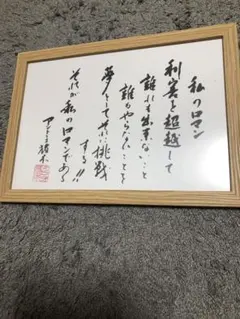 私のロマン
利害を超越して
誰れも出来ないこと
誰もやらないことを
夢をもってそれに挑戦
する!!
それが私のロマンである
アントニオ猪木